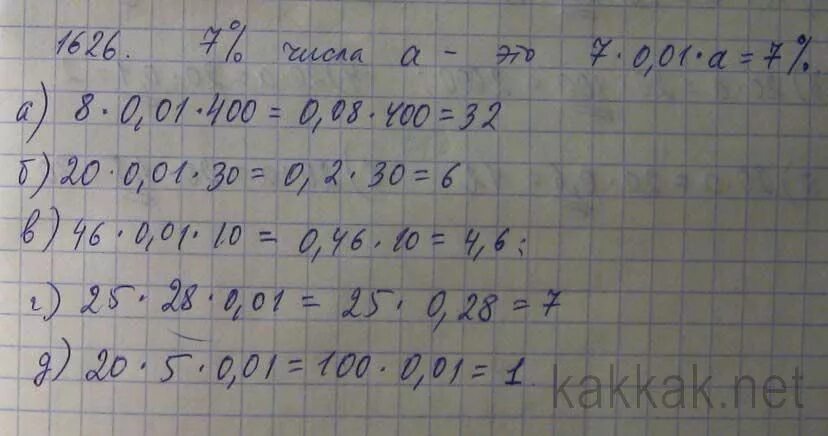 1626. 7% числа а - это 7·0,01·а=7%.
а) 8·0,01·400=0,08·400=32
б) 20·0,01·30=0,2·30=6
в) 46·0,01·10=0,46·10=4,6;
г) 25·28·0,01=25·0,28=7
д) 20·5·0,01=100·0,01=1
kakkak.net